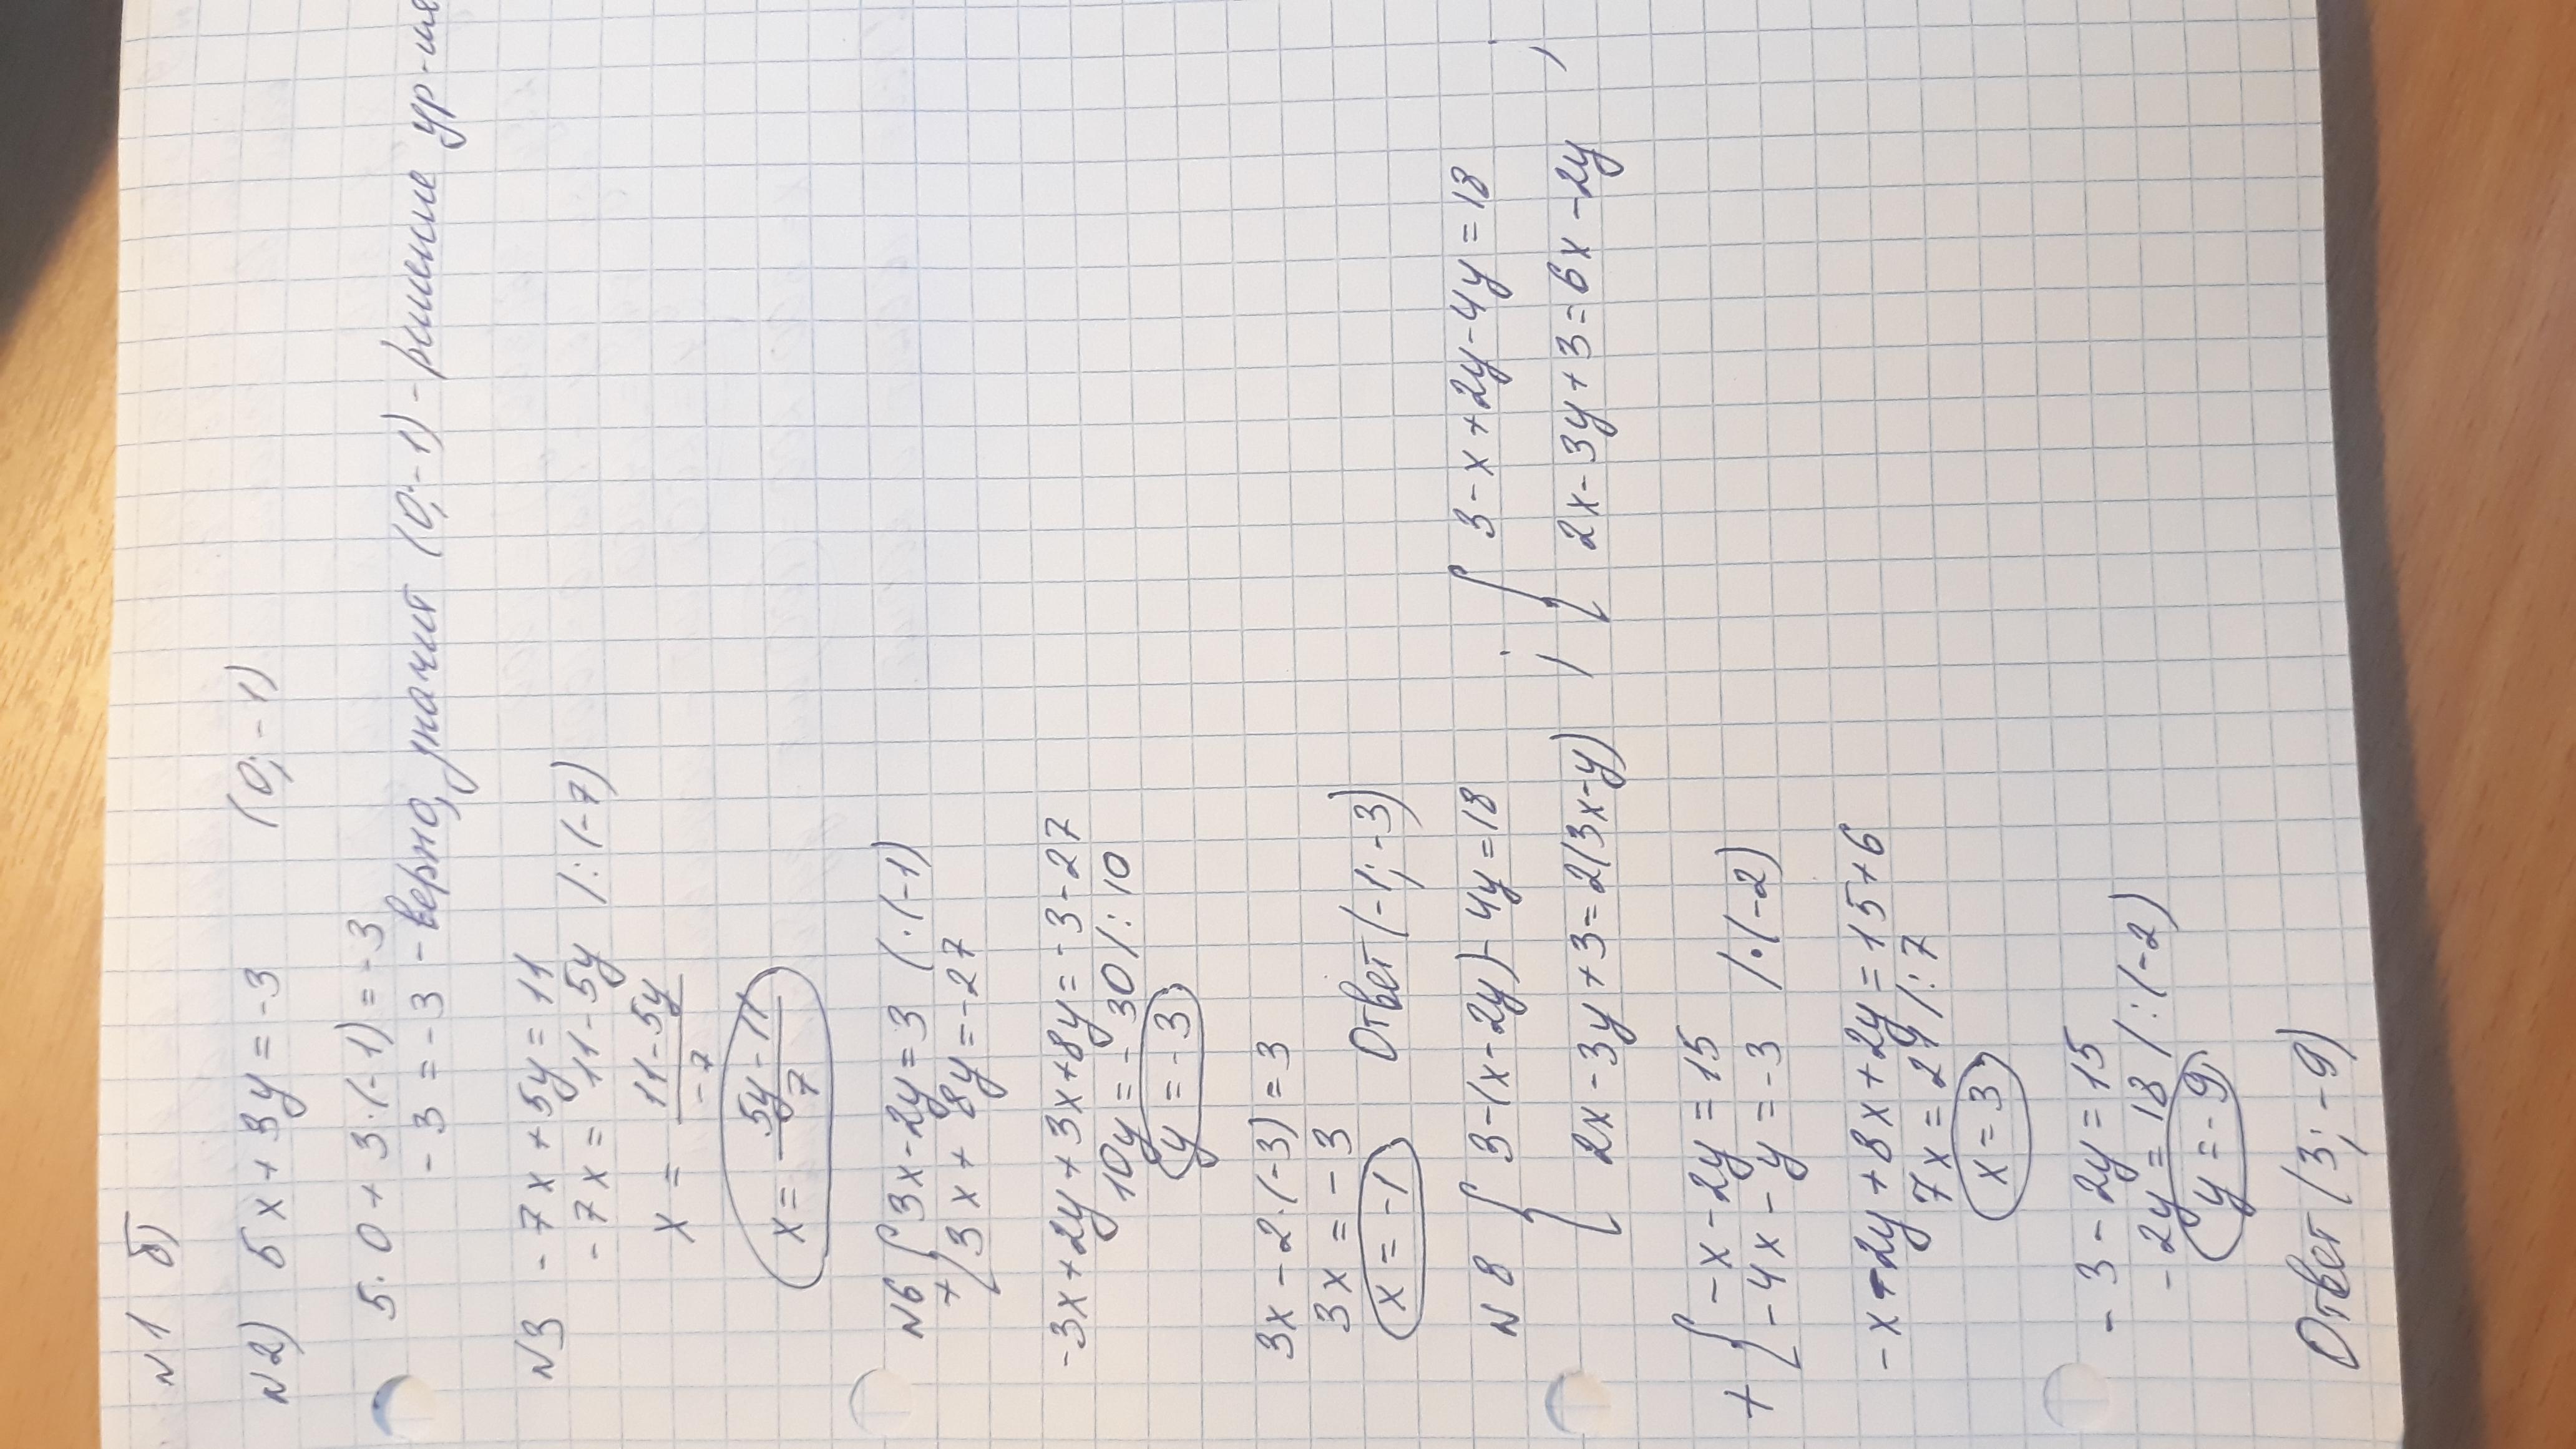 N1 б)
N2) 5x + 3y = -3 (0; -1)
5·0 + 3·(-1) = -3
-3 = -3 - верно, значит (0; -1) - решение ур-ия
N3 -7x + 5y = 11
-7x = 11 - 5y /:(-7)
x = \frac{11-5y}{-7}
x = \frac{5y-11}{7}
N6 + { 3x - 2y = 3 (·(-1)
3x + 8y = -27
-3x + 2y + 3x + 8y = -3 - 27
10y = -30 /:10
y = -3
3x - 2·(-3) = 3
3x = -3
x = -1 Ответ (-1; -3)
N8 { 3 - (x - 2y) - 4y = 18 ; { 3 - x + 2y - 4y = 18 ;
2x - 3y + 3 = 2(3x - y) 2x - 3y + 3 = 6x - 2y
+ { -x - 2y = 15
-4x - y = -3 /·(-2)
-x - 2y + 8x + 2y = 15 + 6
7x = 21 /:7
x = 3
-3 - 2y = 15
-2y = 18 /:(-2)
y = -9
Ответ (3; -9)